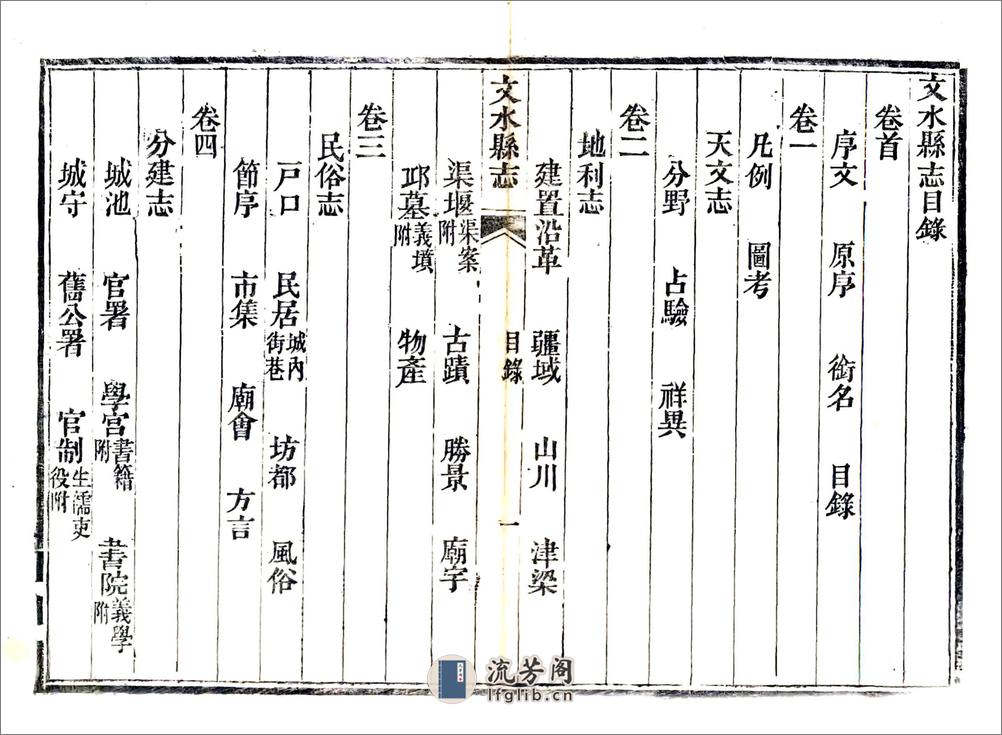 文水縣志目錄
卷首
序文 原序 銜名 目錄
卷一
凡例 圖考
天文志
分野 占驗 祥異
卷二
地利志
建置沿革 疆域 山川 津梁
文水縣志 目錄 一
渠堰渠案附 古蹟 勝景 廟宇
邛墓義墳附 物產
卷三
民俗志
戸口 民居城內街巷 坊都 風俗
節序 市集 廟會 方言
卷四
分建志
城池 官署 學宫書籍附 書院義學附
城守 舊公署 官制生濡吏役附
流芳阁
lfglib.cn